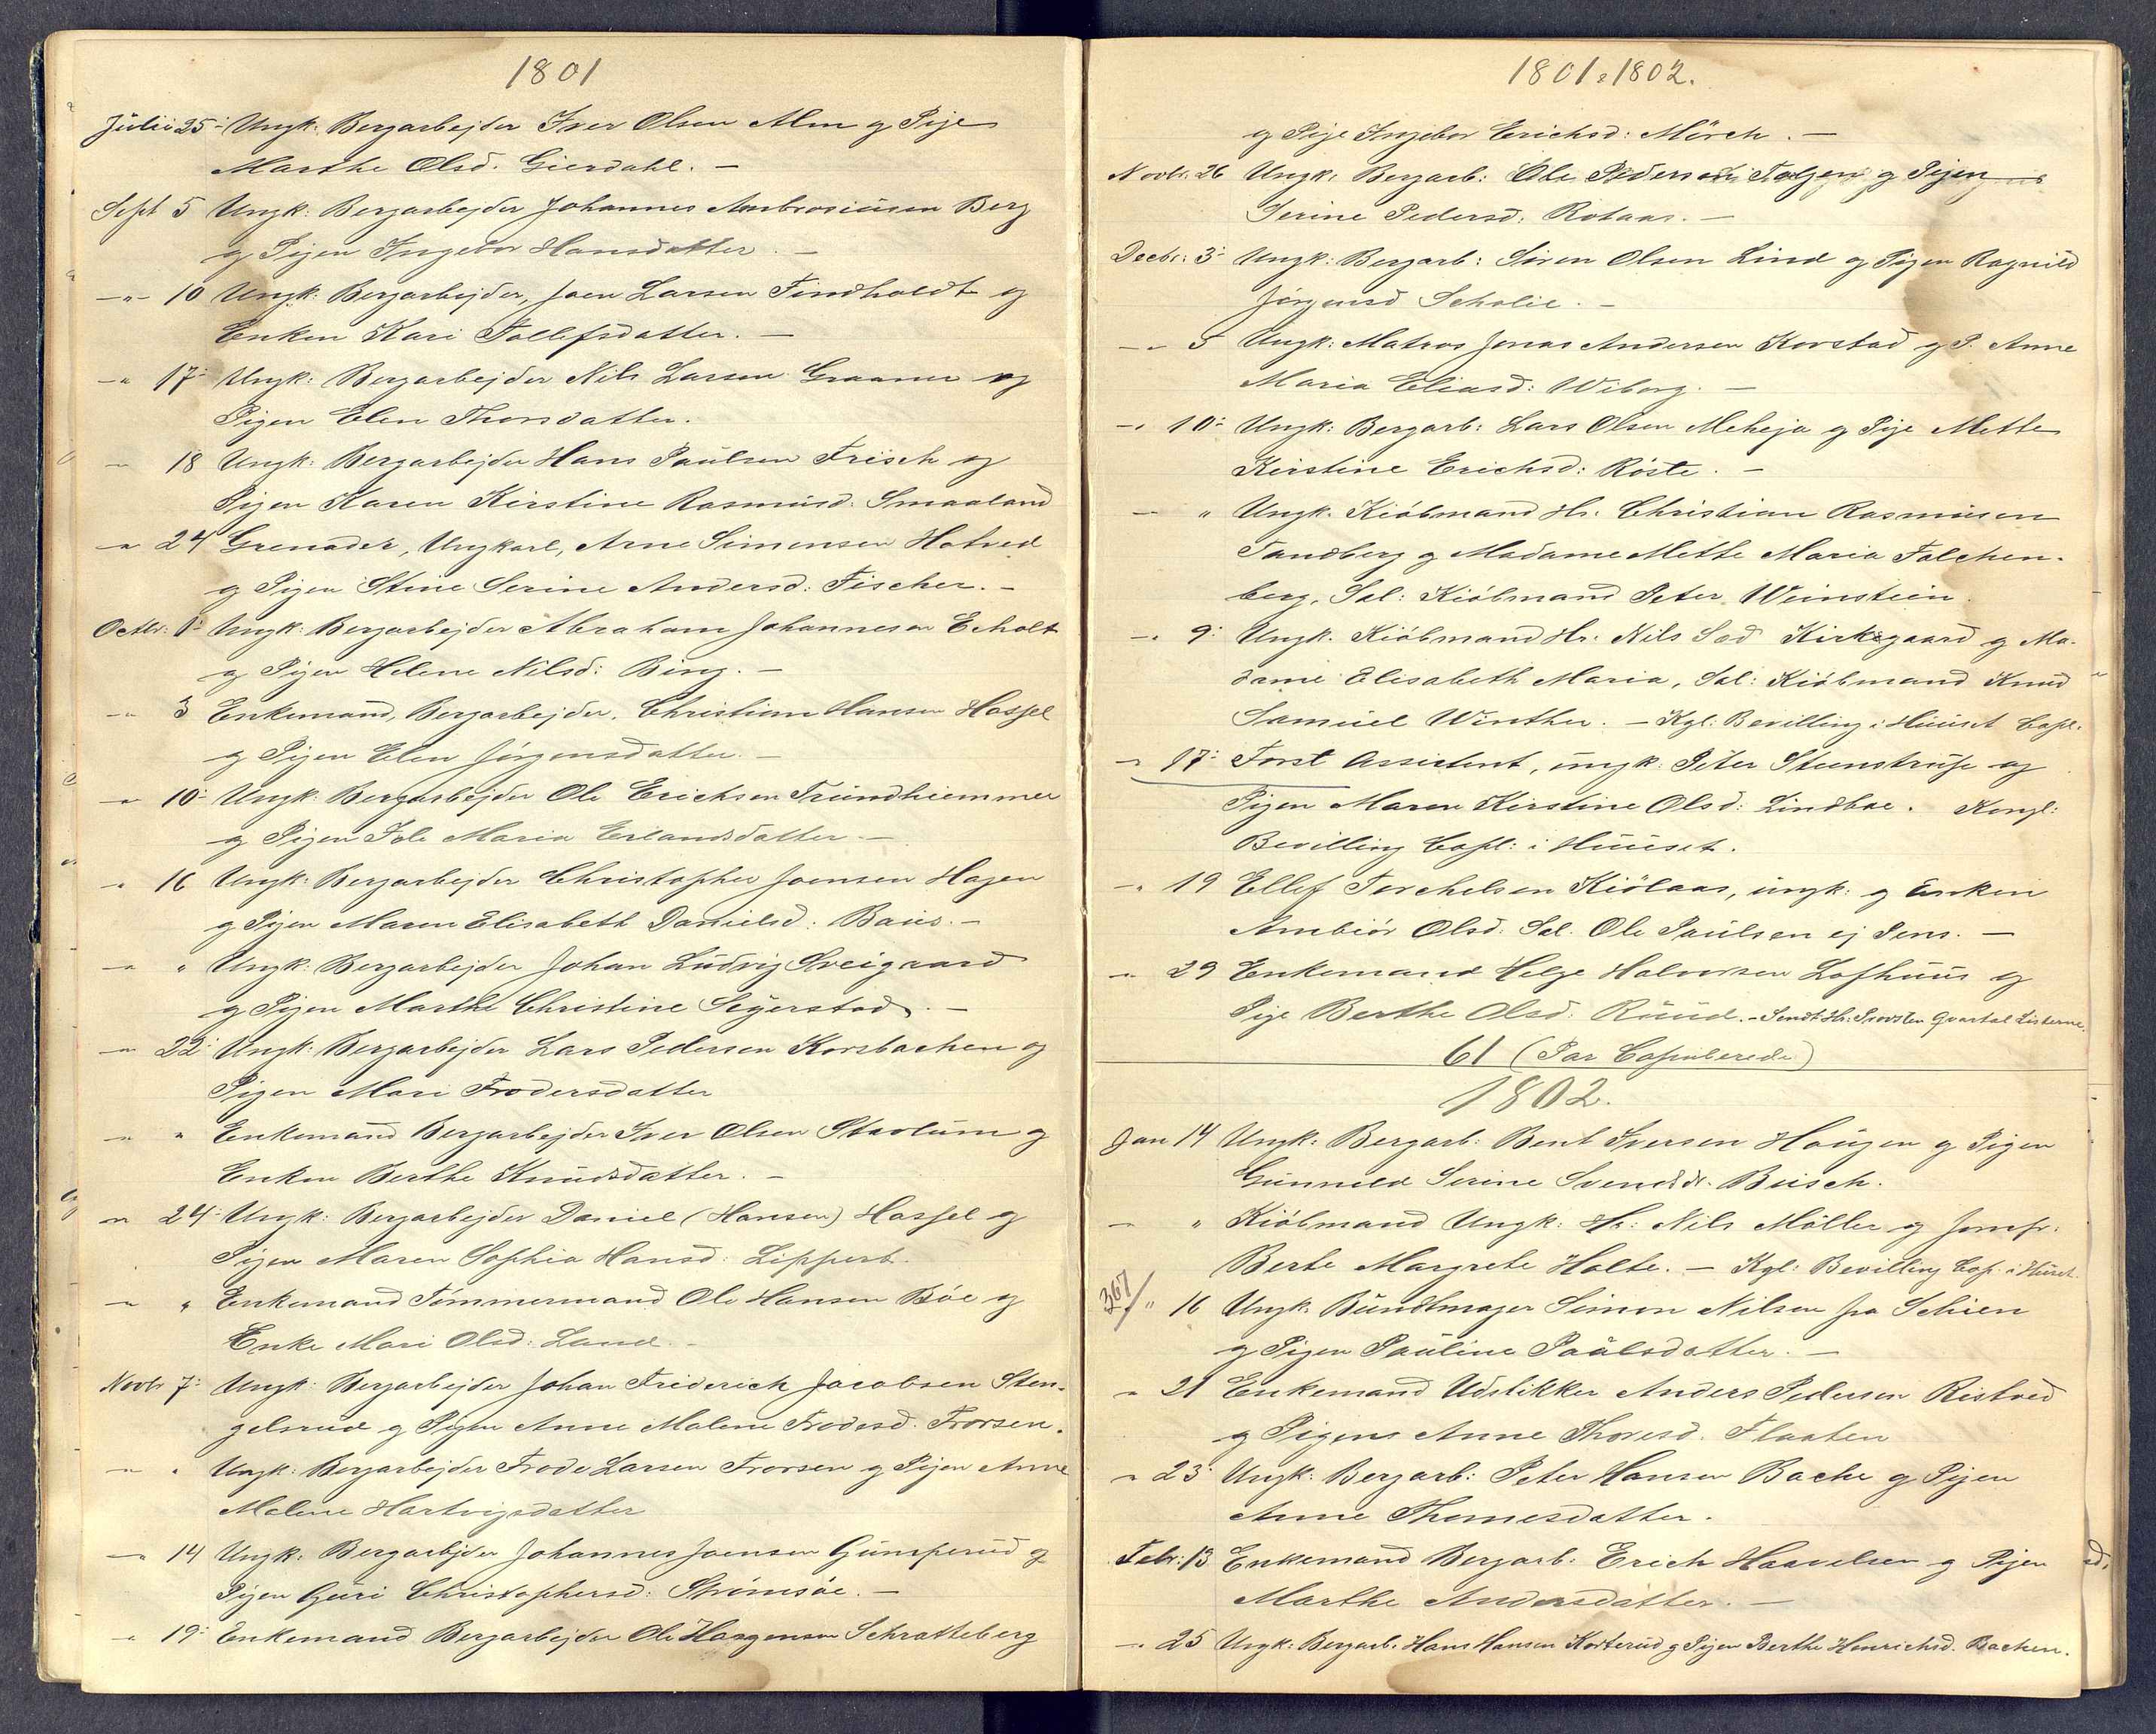 1801
Julii 25 Ungk: Bergarbejder Iver Olsen Alm og Pige
Marthe Olsd. Gierdahl. —
Sept 5 Ungk: Bergarbejder Johannes Ambrosiusen Berg
og Pigen Ingebor Hansdatter. —
—„— 10 Ungk: Bergarbejder, Joen Larsen Findholdt og
Enken Kari Tollefsdatter. —
—„ 17 Ungk: Bergarbejder Nils Larsen Graaner og
Pigen Elen Thorsdatter.
—„ 18 Ungk: Bergarbejder Hans Paulsen Frisch og
Pigen Karen Kirstine Rasmusd: Smaaland
—„ 24 Grenader, Ungkarl, Arne Simensen Hotved
og Pigen Stine Serine Andersd: Fischer. —
Octbr: 1 Ungk: Bergarbejder Abraham Johannesen Echolt
og Pigen Helene Nilsd: Bing. —
—„ 3 Enkemand, Bergarbejder, Christian Hansen Hassel
og Pigen Elen Jörgensdatter. —
—„ 10 Ungk: Bergarbejder Ole Erichsen Trundhiemmer
og Pigen Maria Erlandsdatter —
—„ 16 Ungk: Bergarbejder Christopher Joensen Hagen
og Pigen Maren Elisabeth Danielsd: Baus. —
—„ „ Ungk: Bergarbejder Johan Ludvig Sveigaard
og Pigen Marthe Christine Segerstad. —
—„ 22 Ungk: Bergarbejder Lars Pedersen Korsbachen og
Pigen Mari Frodersdatter
—„ „ Enkemand Bergarbejder Iver Olsen Stavlum og
Enken Berthe Knudsdatter. —
—„ 24 Ungk: Bergarbejder Daniel (Hansen) Hassel og
Pigen Maren Sophia Hansd: Lippert.
—„ „ Enkemand Tømmermand Ole Hansen Böe og
Enke Mari Olsd: Lund. —
Novbr 7 Ungk: Bergarbejder Johan Friderich Jacobsen Sten-
gelsrud og Pigen Anne Malene Frodesd. Frorsen.
—„ „ Ungk: Bergarbejder Frode Larsen Frorsen og Pigen Anne
Malene Hartvigsdatter
—„ 14 Ungk: Bergarbejder Johannes Joensen Gumperud og
Pigen Guri Christophersd: Strömsöe. —
—„ 19 Enkemand Bergarbejder Ole Haagensen Schratteberg
1801 & 1802.
og Pige Ingebor Erichsd: Mörch. —
Novbr. 26 Ungk: Bergarb: Ole Pedersen Talgen og Pigen
Serine Pedersd: Rotaas. —
Decbr: 3 Ungk: Bergarb: Sören Olsen Lind og Pigen Ragnild
Jörgensd Scholie. —
—„ 5 Ungk: Matros Jonas Andersen Korstad og P. Anne
Maria Eliasd: Wiborg. —
—„ 10 Ungk: Bergarb: Lars Olsen Meheja og Pige Mette
Kirstine Erichsd: Röste. —
— „ Ungk. Kiöbmand Hr. Christian Rasmusen
Tandberg og Madame Mette Maria Falchen-
berg, Sal: Kiöbmand Peter Weinstein.
—„ 9 Ungk. Kiöbmand Hr: Nils Sød Kirkegaard og Ma-
dame Elisabeth Maria, Sal: Kiöbmand Knud
Samuel Winther. — Kgl: Bevilling i Huuset Copl.
—„ 17 Forst Assistent, ungk: Peter Steenstrup og
Pigen Maren Kirstine Olsd: Lindboe. Kongl:
Bevilling Copl: i Huuset.
—„ 19 Ellef Torchelsen Kiölaas, ungk: og Enken
Ambiör Olsd: Sal. Ole Paulsen ej Pens. —
—„ 29 Enkemand Helge Halvorsen Lofthuus og
Pige Berthe Olsd: Ruud. — Sendt Hr: Provsten Qvartal Listerne.
61 (Par Copulerede)
1802.
Jan 14 Ungk: Bergarb: Bent Iversen Haugen og Pigen
Gunnild Serine Svendsdr. Busch.
—„ „ Kiöbmand Ungk: Hr: Nils Möller og Jomfr:
Berte Margrete Holte. — Kgl: Bevilling Cop. i Huset.
367/ „ 16 Ungk. Bundtmager Simon Nilsen fra Schien
og Pigen Pauline Paulsdatter. —
—„ 21 Enkemand Udstikker Anders Pedersen Ristved
og Pigens Anne Thoresd. Flaaten
—„ 23 Ungk: Bergarb: Peter Hansen Bache og Pigen
Anne Thomesdatter.
Febr: 13 Enkemand Bergarb: Erich Haavelsen og Pigen
Marthe Andersdatter. —
—„ 25 Ungk: Bergarb: Hans Hansen Korterud og Pigen Berthe Henrichsd. Bachen.